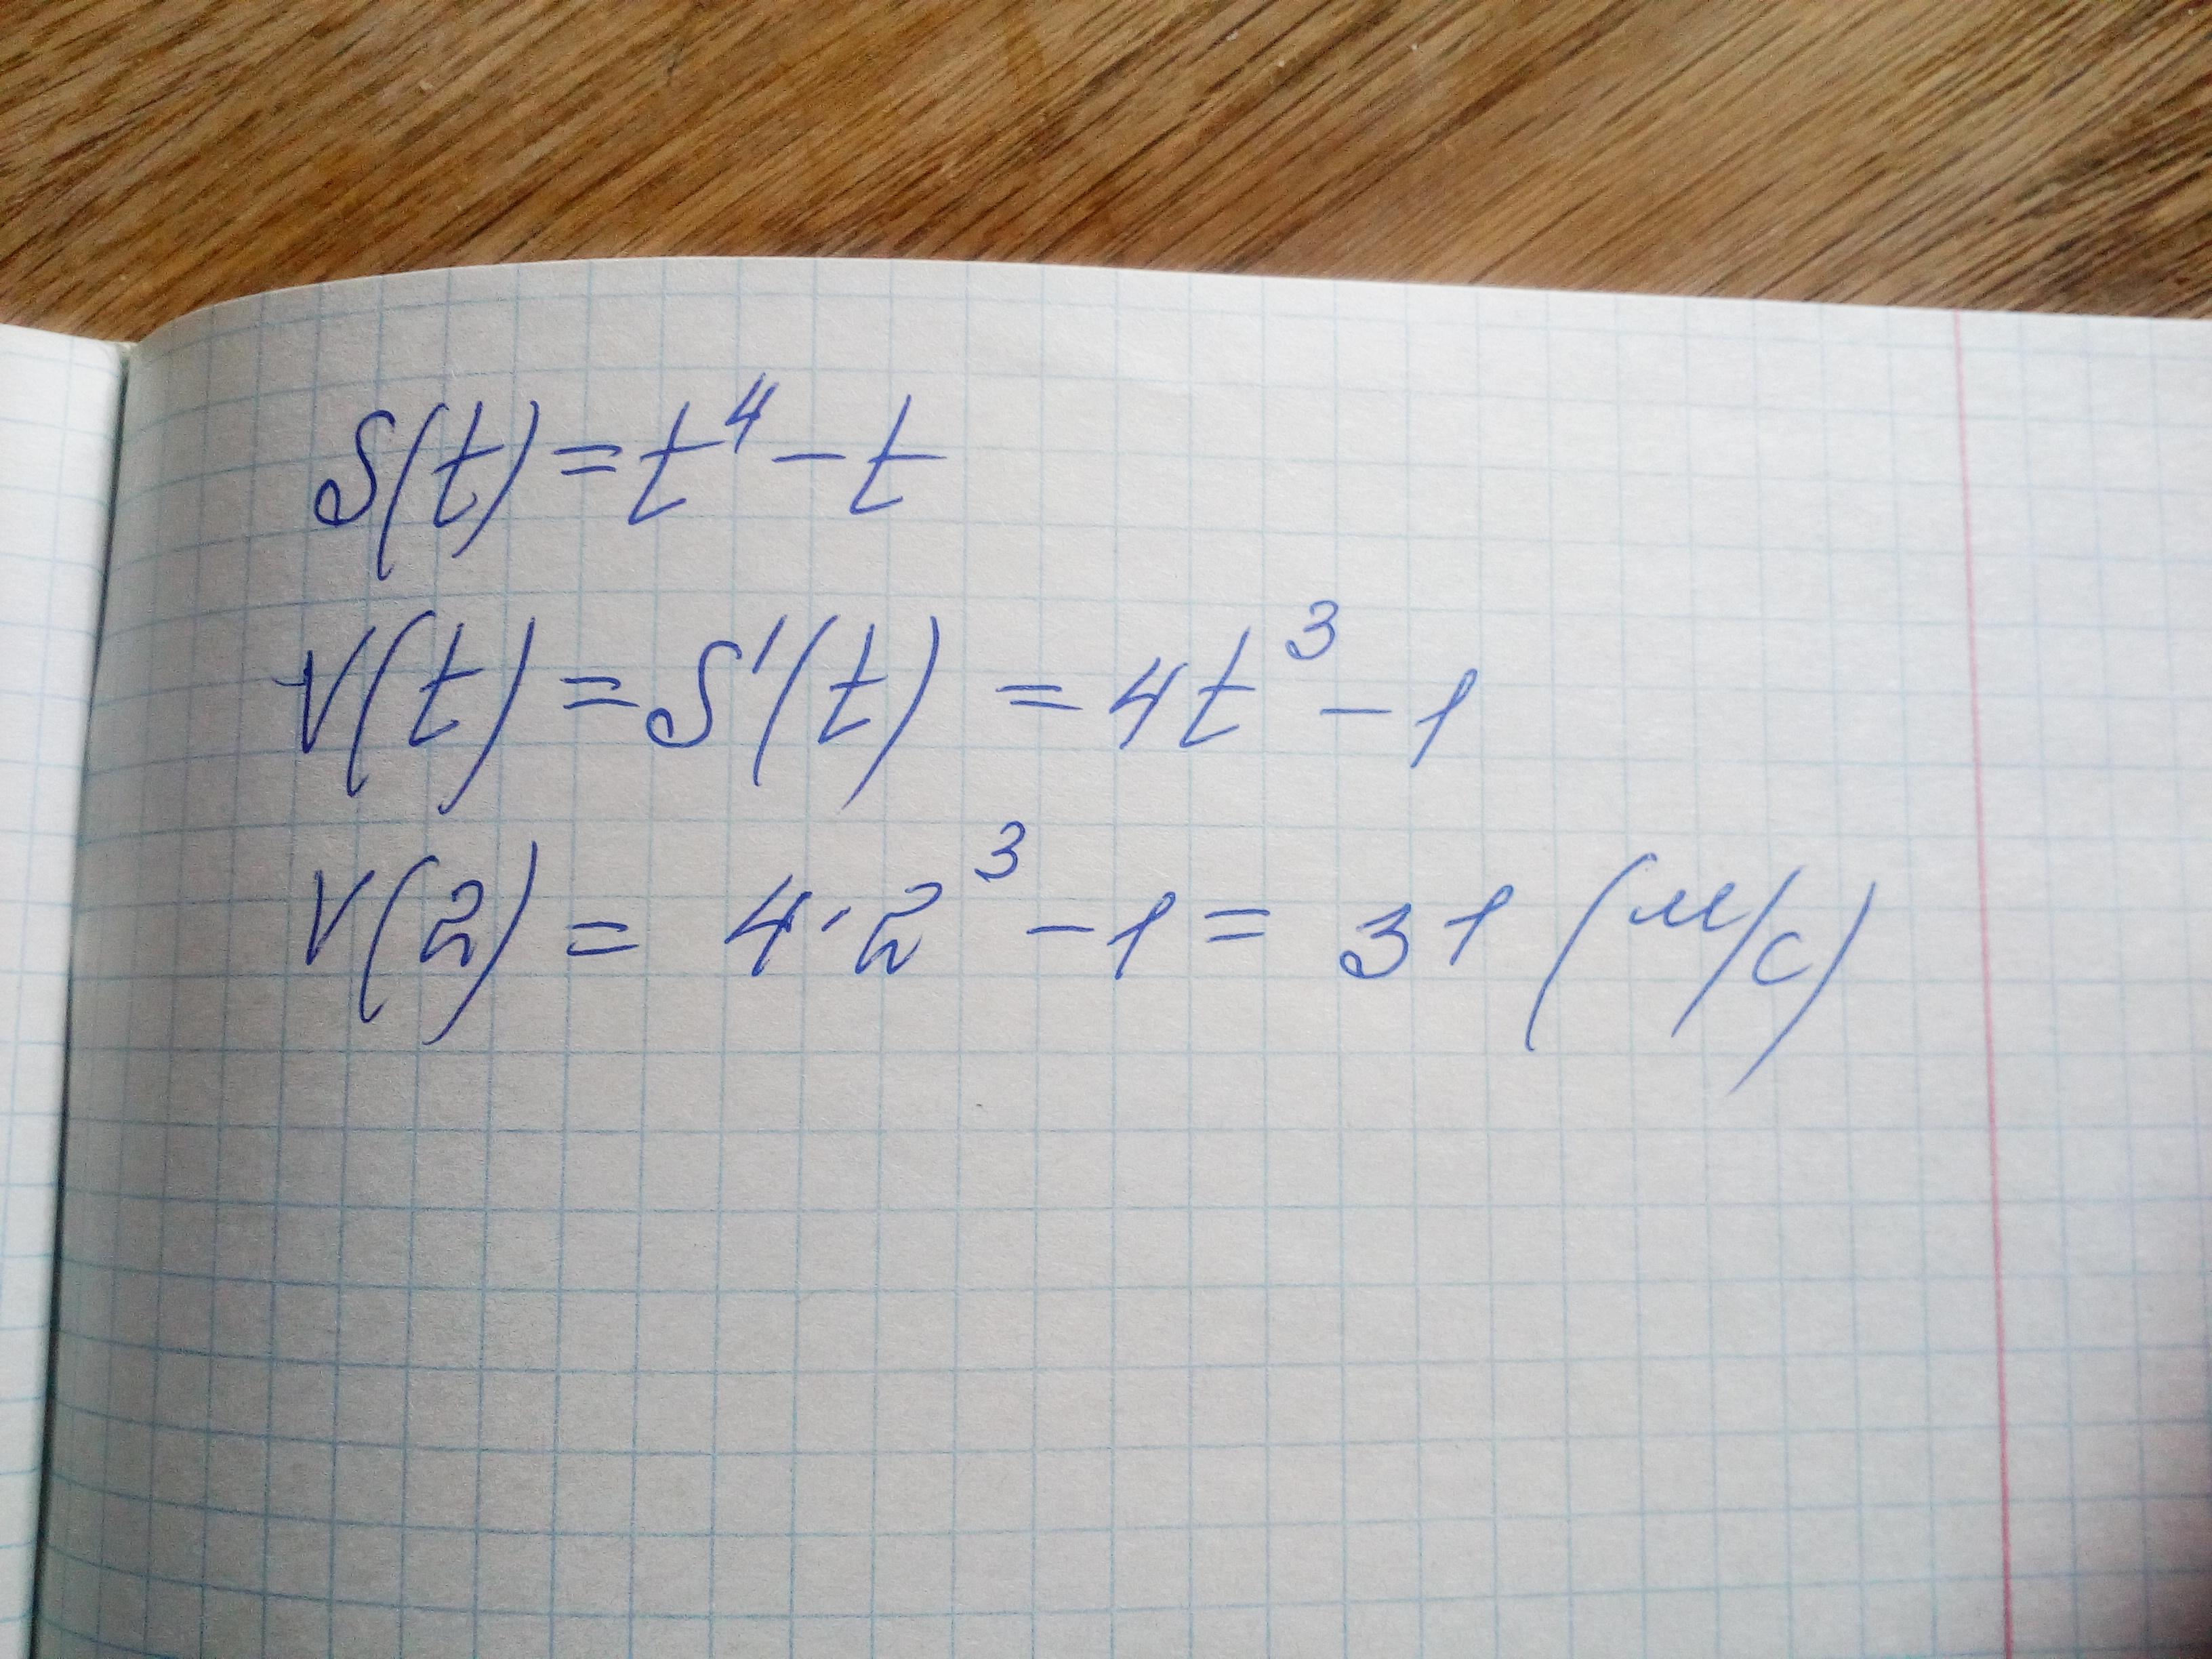 S(t)=t⁴-t
V(t)=S'(t)=4t³-1
V(2)=4·2³-1=31 (м/с)